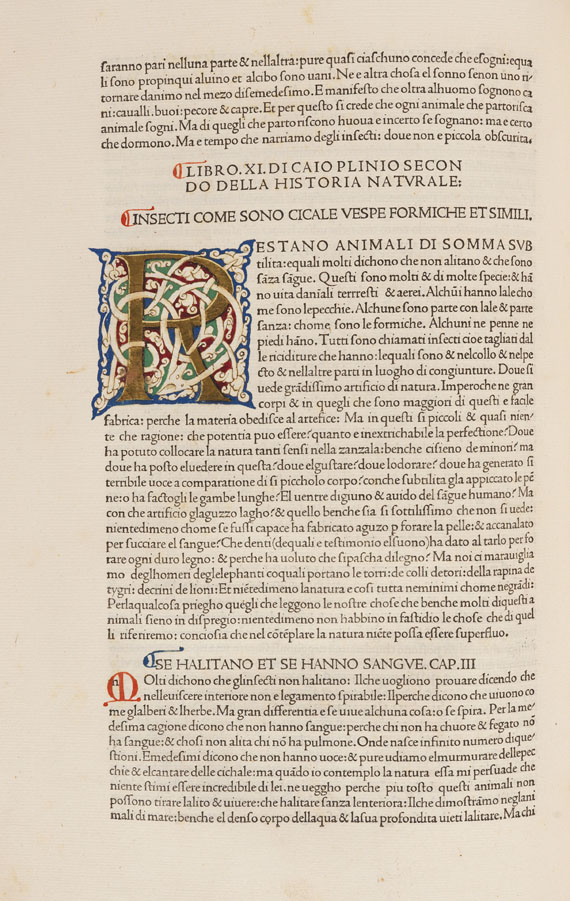 ſaranno pari nelluna parte & nellaltra:pure quaſi ciaſchuno concede che eſogni:equa
li ſono propinqui aluino et alcibo ſono uani. Ne e altra choſa el ſonno ſenon uno ri
tornare danimo nel mezo diſemedeſimo. E manifeſto che oltra alhuomo ſognono ca
ni:caualli.buoi:pecore & capre. Et per queſto ſi crede che ogni animale che partoriſca
animale ſogni. Ma di quegli che partoriſcono huoua e incerto ſe ſognano: ma e certo
che dormono. Ma e tempo che narriamo degli inſecti: doue non e piccola obſcurita.
LIBRO.XI.DI CAIO PLINIO SECON
DO DELLA HISTORIA NATVRALE:
INSECTI COME SONO CICALE VESPE FORMICHE ET SIMILI.
RESTANO ANIMALI DI SOMMA SVB
tilita:equali molti dichono che non alitano & che ſono
ſāza ſāgue. Queſti ſono molti & di molte ſpecie:& hā
no uita daniali terrreſti & aerei. Alchūi hanno lale cho
me ſono lepecchie. Alchune ſono parte con lale & parte
ſanza: chome ſono le formiche. Alchuni ne penne ne
piedi hāno. Tutti ſono chiamati inſecti cioe tagliati dal
le riciditure che hanno:lequali ſono & nelcollo & nelpe
cto & nellaltre parti in luogho di congiunture. Doue ſi
uede grādiſſimo artificio di natura. Imperoche ne gran
corpi & in quegli che ſono maggiori di queſti e facile
fabrica: perche la materia obediſce al artefice: Ma in queſti ſi piccoli & quaſi nien‑
te che ragione: che potentia puo eſſere?quanto e inextrichabile la perfectione?Doue
ha potuto collocare la natura tanti ſenſi nella zanzala:benche ciſieno de minori? ma
doue ha poſto eluedere in queſta?doue elguſtare?doue lodorare? doue ha generato ſi
terribile uoce a comparatione di ſi piccholo corpo?conche ſubtilita gla appiccato le pē
ne:o ha factogli le gambe lunghe?El uentre digiuno & auido del ſāgue humano? Ma
con che artificio glaguzzo lagho?& quello benche ſia ſi ſottiliſſimo che non ſi uede:
nientedimeno chome ſe fuſſi capace ha fabricato aguzo p forare la pelle:& accanalato
per ſucciare el ſangue?Che denti(dequali e teſtimonio elſuono)ha dato al tarlo per fo
rare ogni duro legno: & perche ha uoluto che ſipaſcha dilegno? Ma noi ci marauiglia
mo deglhomeri deglelephanti coquali portano le torri:de colli detori:della rapina de
tygri: decrini de lioni: Et niētedimeno lanatura e coſi tutta neminimi chome negrādi:
Perlaqualcoſa priegho quegli che leggono le noſtre choſe che benche molti diqueſti a
nimali ſieno in diſpregio:nientedimeno non habbino in faſtidio le choſe che di quel
li riferiremo: concioſia che nel cōtēplare la natura niēte poſſa eſſere ſuperfluo.
SE HALITANO ET SE HANNO SANGVE. CAP. III
MOlti dichono che glinſecti non halitano: Ilche uogliono prouare dicendo che
nelleuiſcere interiore non e legamento ſpirabile:Ilperche dicono che uiuono co
me glalberi & lherbe. Ma gran differentia e ſe uiue alchuna coſa:o ſe ſpira. Per la me‑
deſima cagione dicono che non hanno ſangue:perche chi non ha chuore & fegato nō
ha ſangue:& choſi non alita chi nō ha pulmone. Onde naſce infinito numero dique‑
ſtioni. Emedeſimi dicono che non hanno uoce:& pure udiamo elmurmurare dellepec
chie & elcantare delle cichale:ma quādo io contemplo la natura eſſa mi perſuade che
niente ſtimi eſſere incredibile di lei.ne ueggho perche piu toſto queſti animali non
poſſono tirare lalito & uiuere:che halitare ſanza lenteriora:Ilche dimoſtrāmo neglani
mali di mare:benche el denſo corpo dellaqua & laſua profondita uieti lalitare. Ma chi